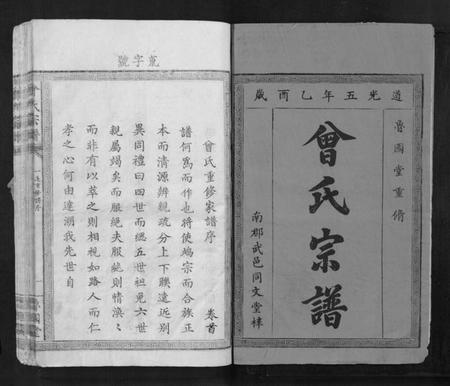 道光五年乙酉歲
魯國堂重脩
曾氏宗譜
南郡武邑同文堂梓
荒字號
曾氏重修家譜序
卷首
譜何為而作也將使端宗而合族正
本而清源辨親疏分上下聯遠近別
異同禮曰四世而緦五世袒免六世
親屬竭矣而服絕夫服絕則情渙渙
而非有以萃之則相視如路人而仁
孝之心何由達溯我先世自